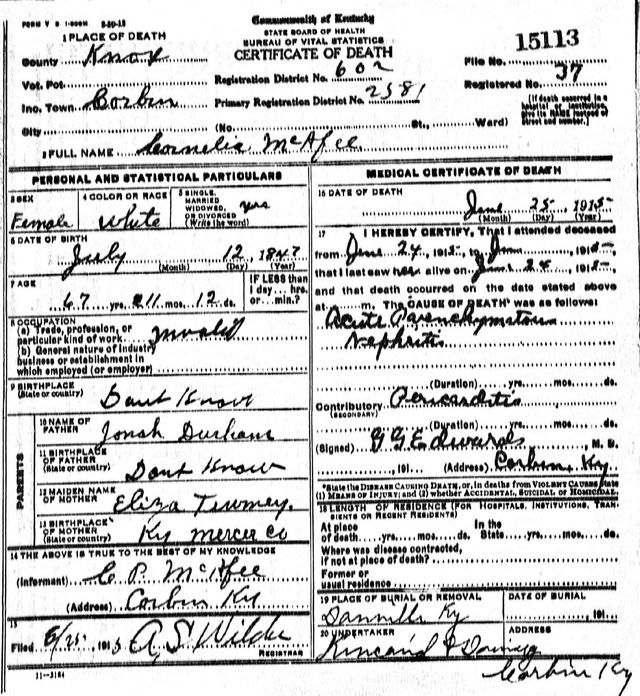 FORM V S 1-500M 3-30-12
Commonwealth of Kentucky
STATE BOARD OF HEALTH
BUREAU OF VITAL STATISTICS
CERTIFICATE OF DEATH
1 PLACE OF DEATH
County Knox
Vot. Pct.
Inc. Town Corbin
City
Registration District No. 602
Primary Registration District No. 2381
(No. St., Ward)
File No. 15113
Registered No. 37
(If death occurred in a hospital or institution, give its NAME instead of street and number.)
2 FULL NAME Cornelia McAfee
PERSONAL AND STATISTICAL PARTICULARS
3 SEX Female
4 COLOR OR RACE White
5 SINGLE, MARRIED WIDOWED, OR DIVORCED (Write the word) yes
6 DATE OF BIRTH
July 12, 1847
(Month) (Day) (Year)
7 AGE
67 yrs. 11 mos. 12 ds.
IF LESS than 1 day... hrs. or... min.?
8 OCCUPATION
(a) Trade, profession, or particular kind of work Invalid
(b) General nature of industry business or establishment in which employed (or employer)
9 BIRTHPLACE
(State or country) Dont Know
PARENTS
10 NAME OF FATHER Jonah Durham
11 BIRTHPLACE OF FATHER (State or country) Dont Know
12 MAIDEN NAME OF MOTHER Eliza
13 BIRTHPLACE OF MOTHER (State or country) Ky mercer co
14 THE ABOVE IS TRUE TO THE BEST OF MY KNOWLEDGE
(Informant) C P McAfee
(Address) Corbin Ky
15
Filed 6/25, 1915 A S Wilde
REGISTRAR
11-3184
MEDICAL CERTIFICATE OF DEATH
16 DATE OF DEATH
June 25 1915
(Month) (Day) (Year)
17 I HEREBY CERTIFY, That I attended deceased
from June 24, 1915, to 1915,
that I last saw her alive on June 24, 1915,
and that death occurred on the date stated above
at m. The CAUSE OF DEATH* was as follows:
Acute Parenchymatous
Nephritis
(Duration) yrs. mos. ds.
Contributory Pericarditis
(SECONDARY)
(Duration) yrs. mos. ds.
(Signed) G G Edwards, M. D.
, 191 (Address) Corbin, Ky
*State the DISEASE CAUSING DEATH, or, in deaths from VIOLENT CAUSES state
(1) MEANS OF INJURY; and (2) whether ACCIDENTAL, SUICIDAL or HOMICIDAL.
18 LENGTH OF RESIDENCE (FOR HOSPITALS, INSTITUTIONS, TRANSIENTS OR RECENT RESIDENTS)
At place of death yrs. mos. ds. In the State yrs. mos. ds.
Where was disease contracted,
if not at place of death?
Former or
usual residence
19 PLACE OF BURIAL OR REMOVAL
Danville Ky
DATE OF BURIAL
, 191
20 UNDERTAKER
Kincaid &
ADDRESS
Corbin Ky